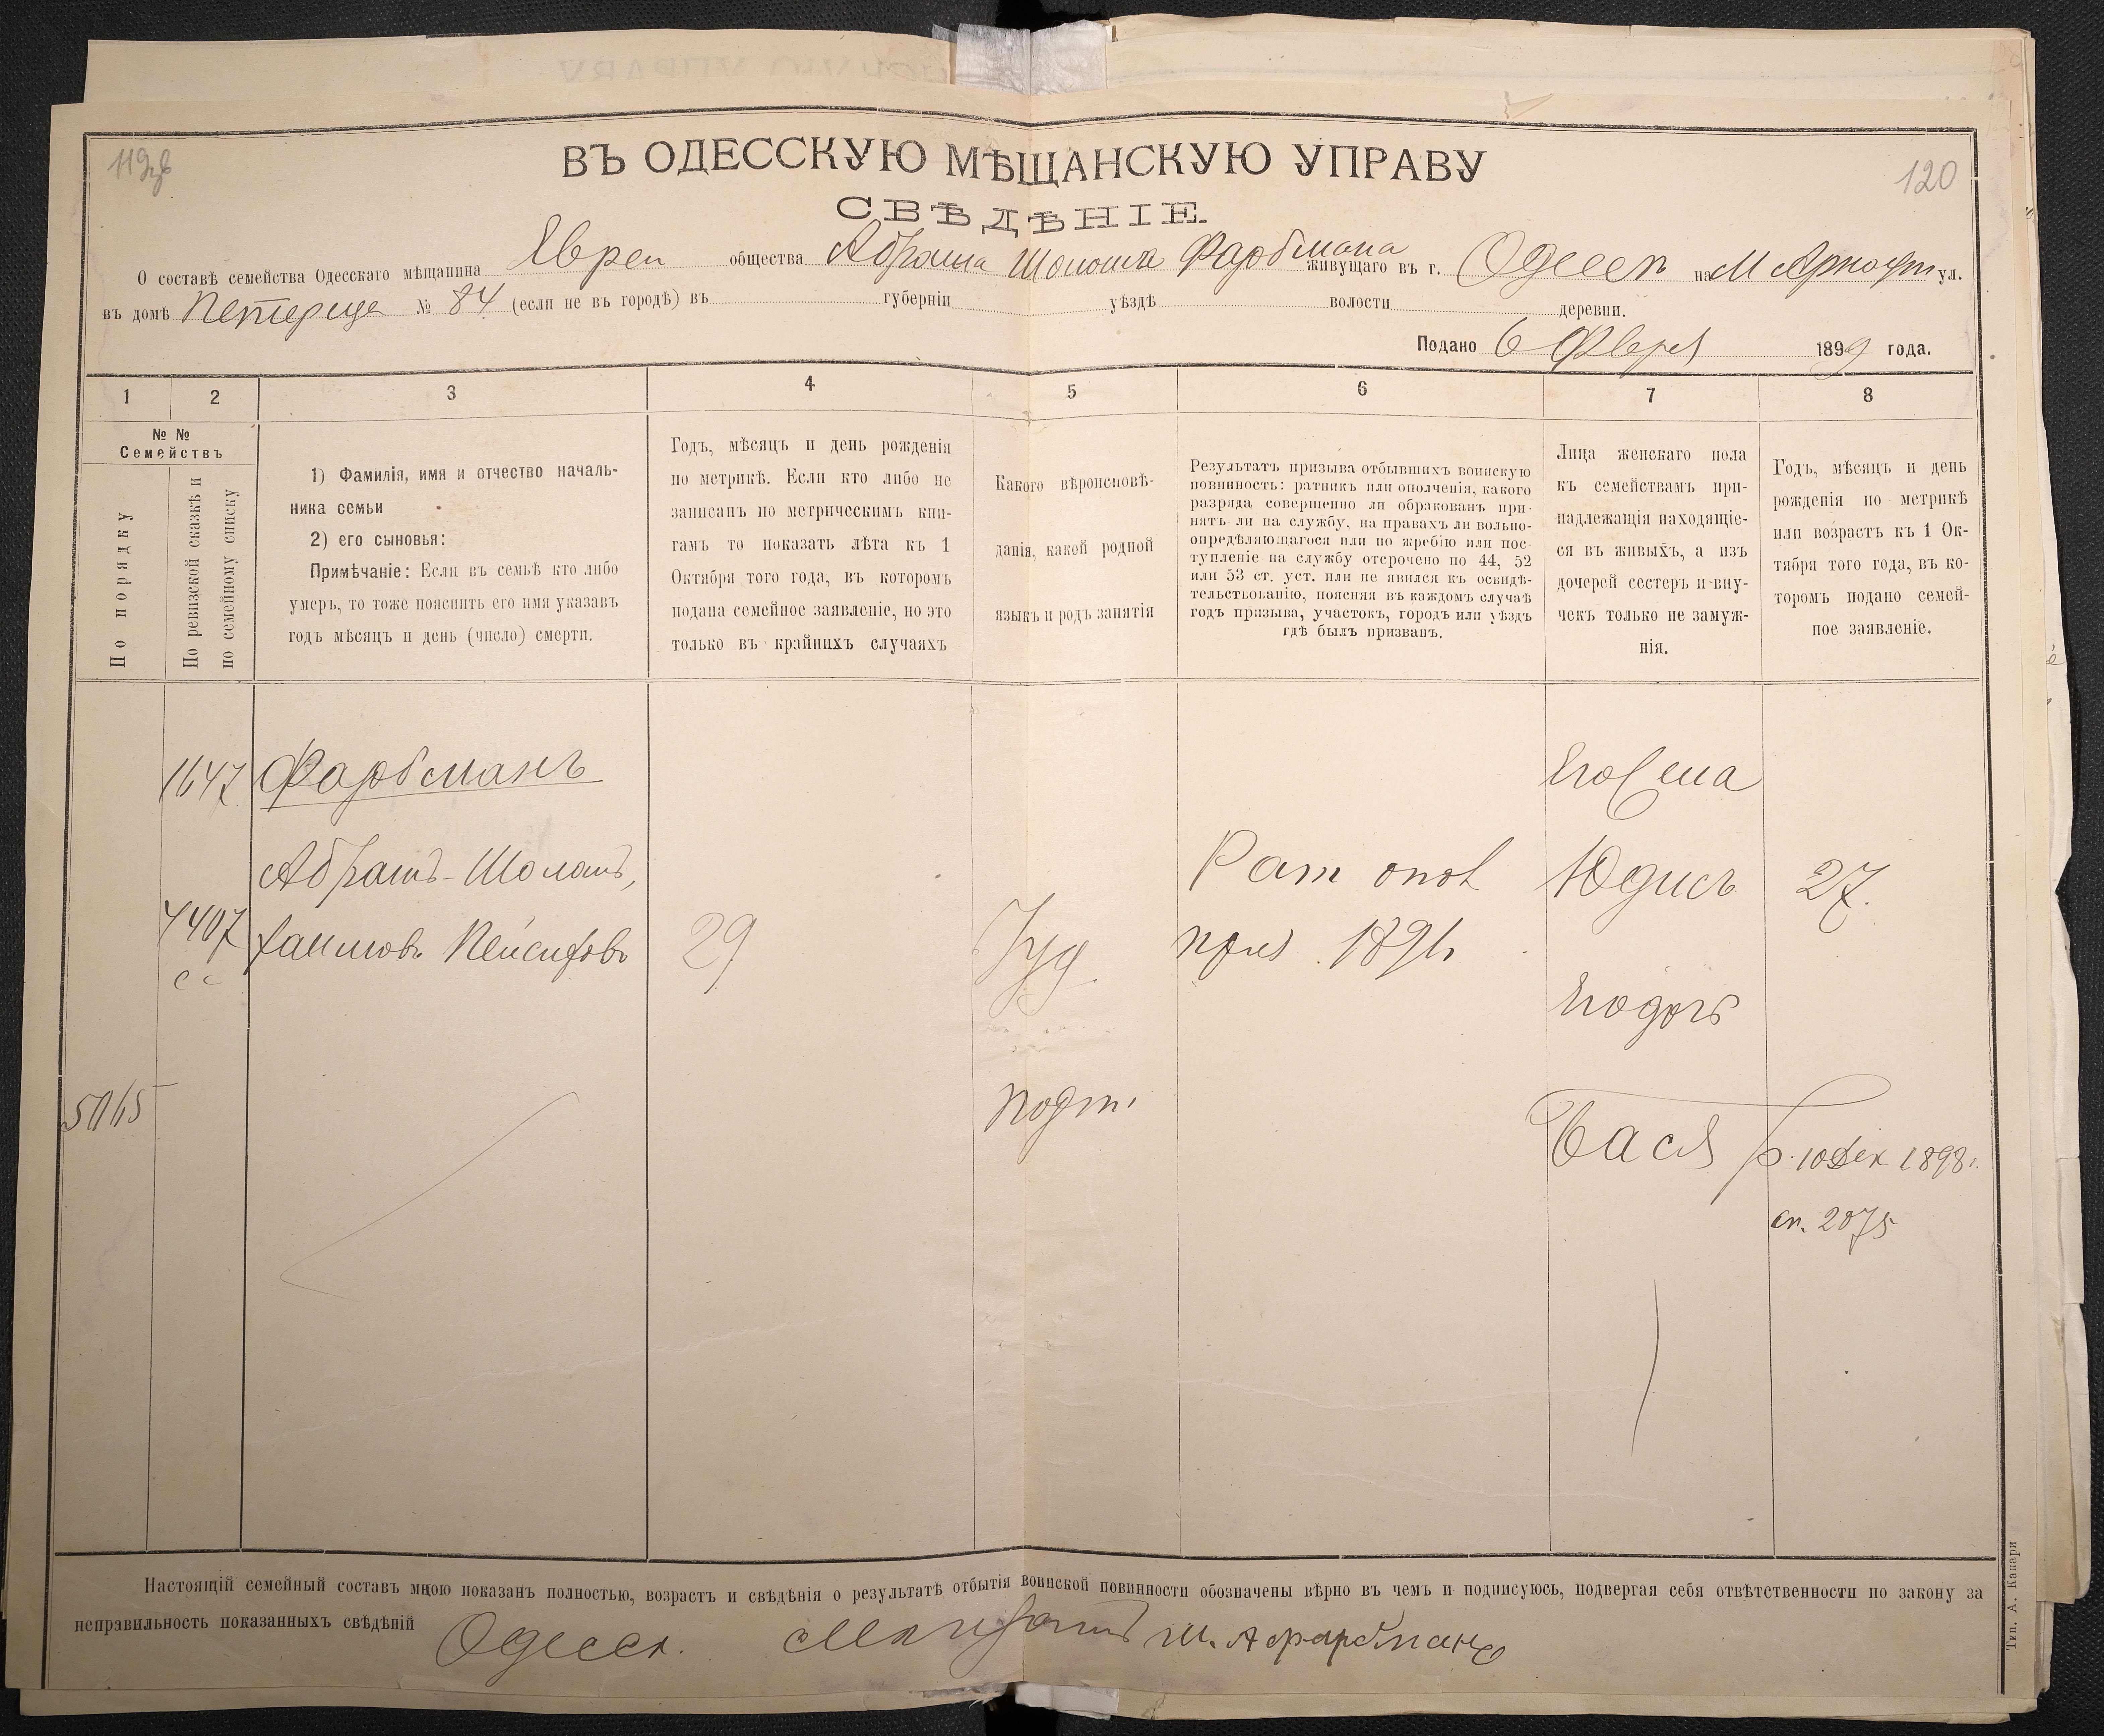 119 об
120
ВЪ ОДЕССКУЮ МѢЩАНСКУЮ УПРАВУ
СВѢДѢНІЕ
О составѣ семейства Одесскаго мѣщанина Евреи общества Абрама Шолома Фарбмана живущаго въ г. Одессѣ на М Арнаут ул.
въ домѣ № 84 (если не въ городѣ) въ губерніи уѣздѣ волости деревни.
Подано 6 Февр 1899 года.
1 2 3 4 5 6 7 8
№ №
Семействъ
По порядку
По ревизской сказкѣ и
по семейному списку
1) Фамилія, имя и отчество началь-
ника семьи
2) его сыновья:
Примѣчаніе: Если въ семьѣ кто либо
умеръ, то тоже пояснить его имя указавъ
годъ мѣсяцъ и день (число) смерти.
Годъ, мѣсяцъ и день рожденія
по метрикѣ. Если кто либо не
записанъ по метрическимъ кни-
гамъ то показать лѣта къ 1
Октября того года, въ которомъ
подана семейное заявленіе, но это
только въ крайнихъ случаяхъ
Какого вѣроисповѣ-
данія, какой родной
языкъ и родъ занятія
Результатъ призыва отбывшихъ воинскую
повинность: ратникъ или ополченія, какого
разряда совершенно ли обракованъ при-
нятъ ли на службу, на правахъ ли вольно-
опредѣляющагося или по жребію или пос-
тупленіе на службу отсрочено по 44, 52
или 53 ст. уст. или не явился къ освидѣ-
тельствованію, поясняя въ каждомъ случаѣ
годъ призыва, участокъ, городъ или уѣздъ
гдѣ былъ призванъ.
Лица женскаго пола
къ семействамъ при-
надлежащія находящіе-
ся въ живыхъ, а изъ
дочерей сестеръ и вну-
чекъ только не замуж-
нія.
Годъ, мѣсяцъ и день
рожденія по метрикѣ
или возрастъ къ 1 Ок-
тября того года, въ ко-
торомъ подано семей-
ное заявленіе.
1647 Фарбманъ
Его жена
Абрамъ-Шоломъ, Рат опол Юдисъ 27.
4407 Хаимовъ Пейсиховъ 29 Іуд приз 1891
сс
Его дочь
5065
порт.
Бася р. 10 Дек 1898 г.
ст. 2075
Настоящій семейный составъ мною показанъ полностью, возрастъ и свѣдѣнія о результатѣ отбытія воинской повинности обозначены вѣрно въ чемъ и подписуюсь, подвергая себя отвѣтственности по закону за
неправильность показанныхъ свѣдѣній Одесск. Ш. А Фарбманъ
Тип. А. Каваги